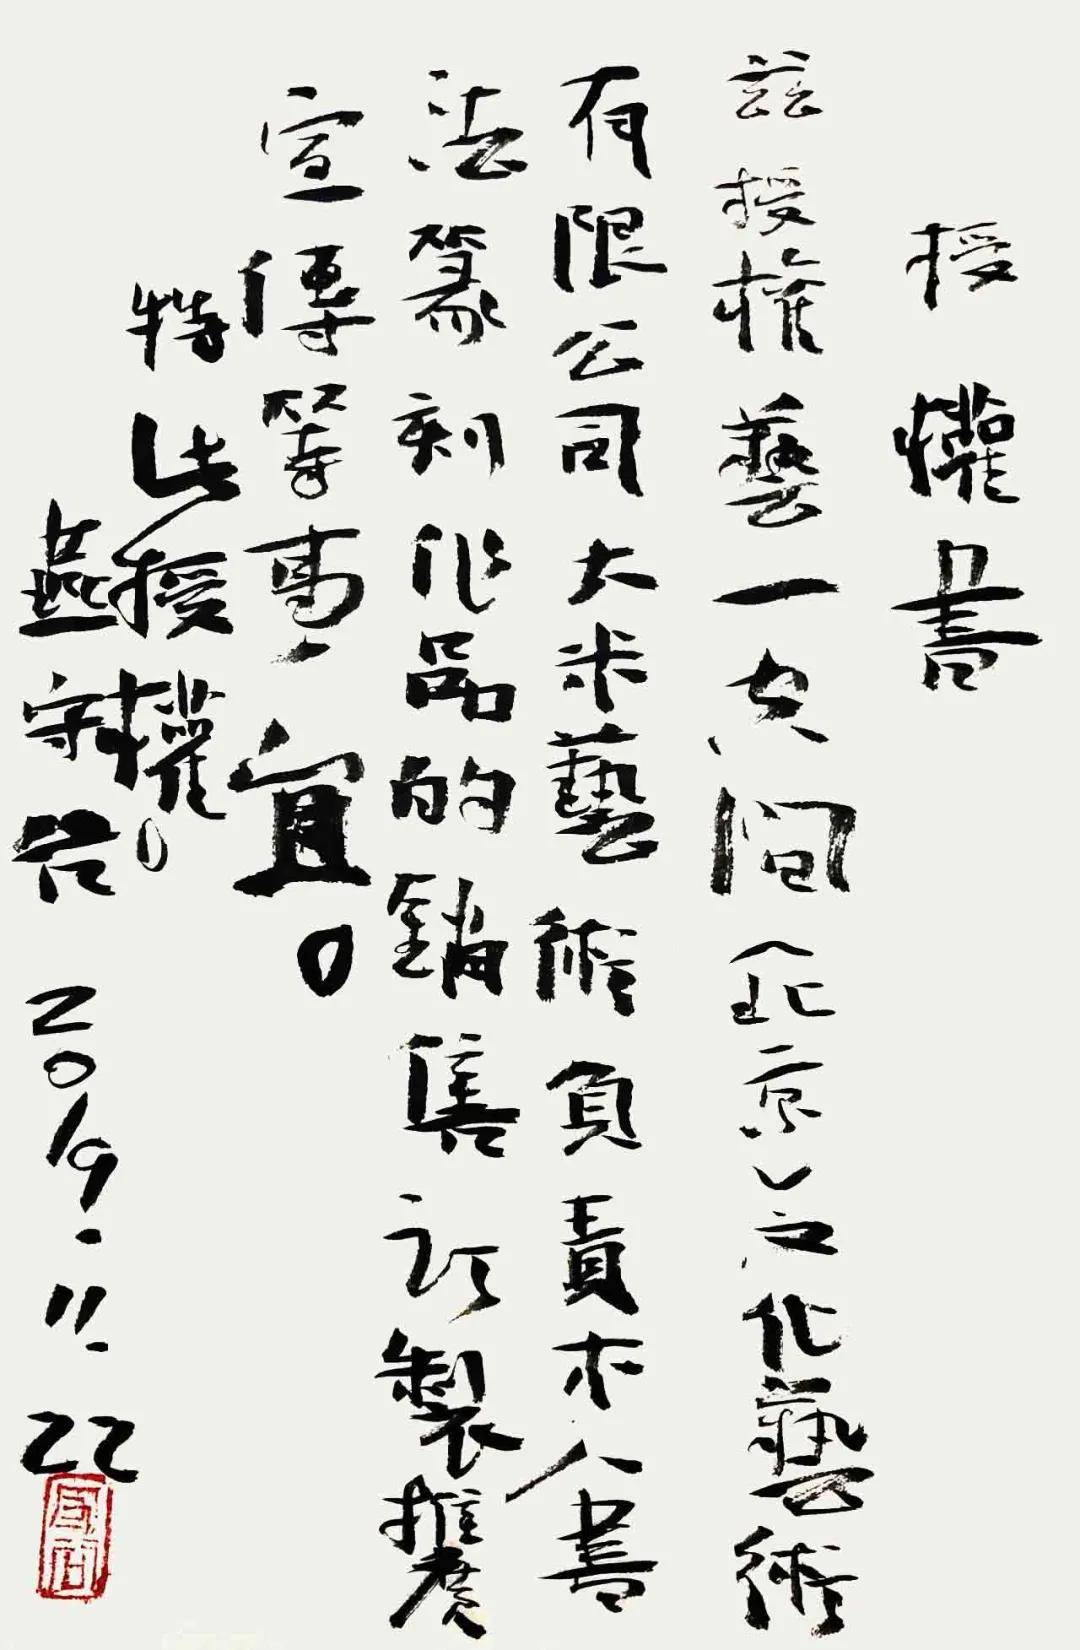 授權書
茲授權藝一空間（北京）文化藝術
有限公司大米藝術負責本人書
法篆刻作品的銷售訂製推廣
宣傳等事宜。
特此授權。
燕守谷 2019.11.22